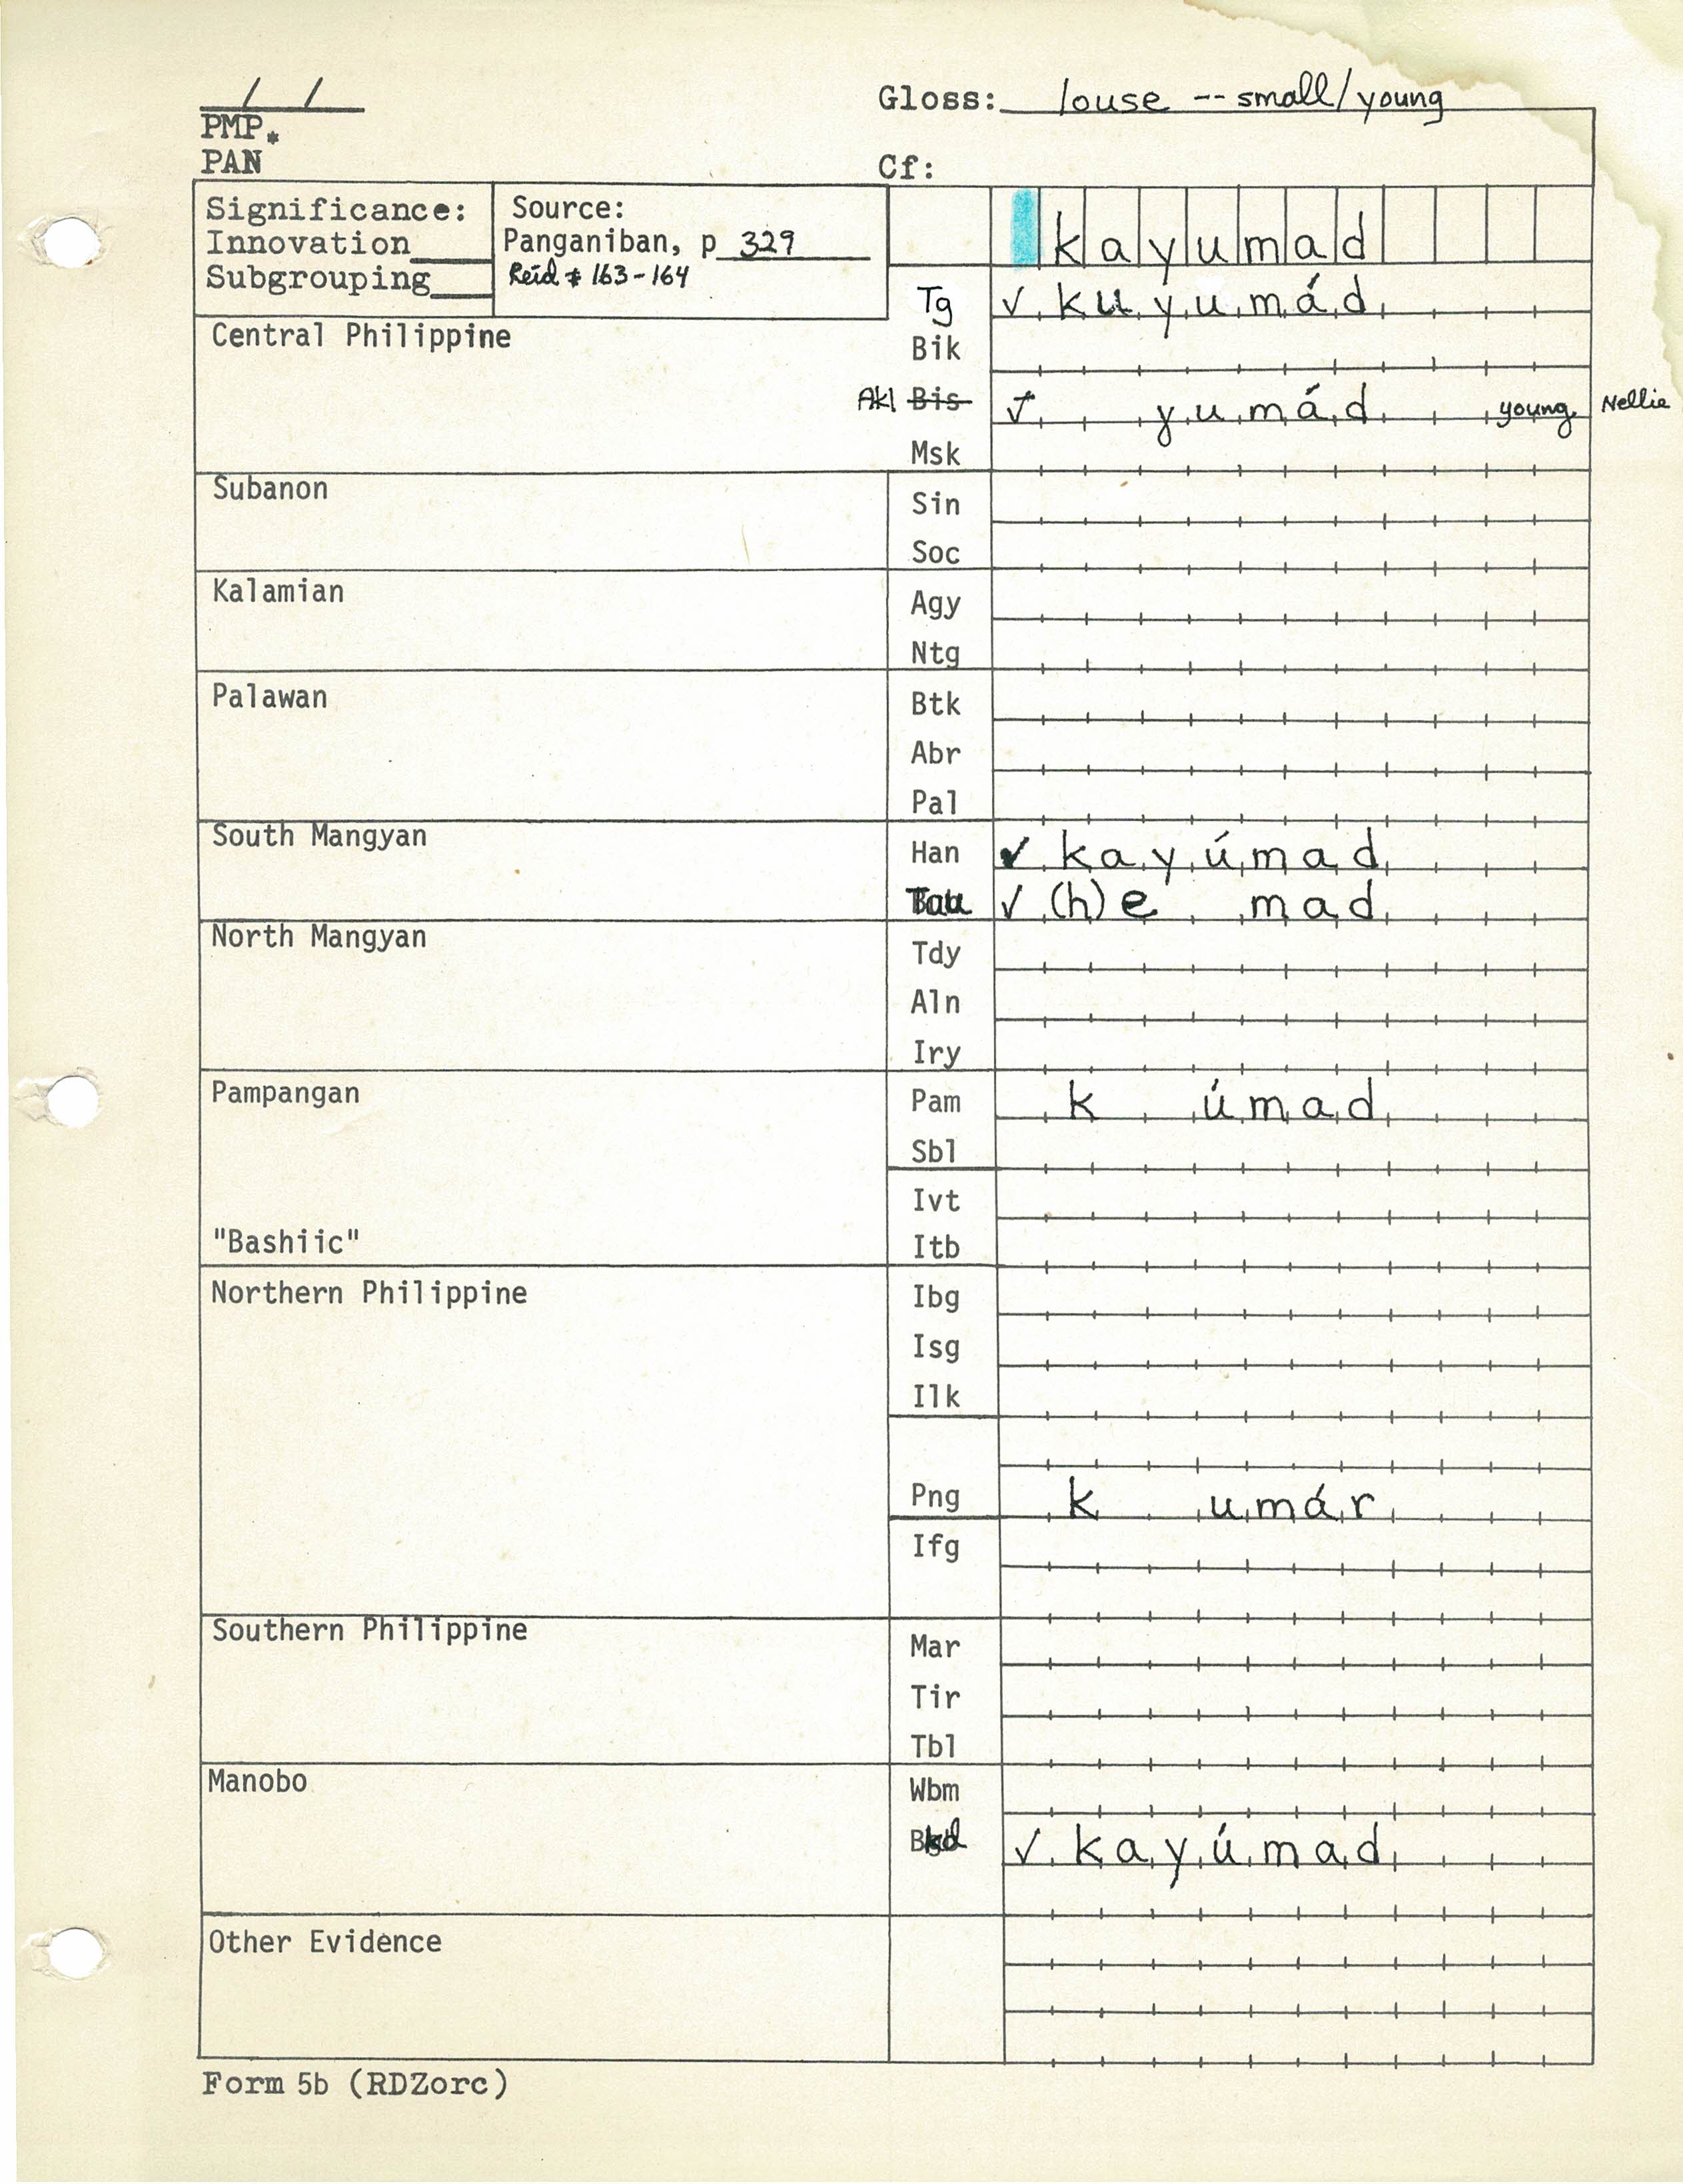 / /
Gloss: louse -- small/young
PMP *
PAN
Cf:
Significance:
Innovation
Subgrouping
Source:
Panganiban, p 329
Reid # 163-164
kayumad
Tg ✓ kuyumád
Central Philippine
Bik
Akl Bis ✓ yumád young Nellie
Msk
Subanon
Sin
Soc
Kalamian
Agy
Ntg
Palawan
Btk
Abr
Pal
South Mangyan
Han ✓ kayúmad
✓ (h)e mad
North Mangyan
Tdy
Aln
Iry
Pampangan
Pam k úmad
Sbl
Ivt
"Bashiic"
Itb
Northern Philippine
Ibg
Isg
Ilk
Png k umár
Ifg
Southern Philippine
Mar
Tir
Tbl
Manobo
Wbm
Bkd ✓ kayúmad
Other Evidence
Form 5b (RDZorc)